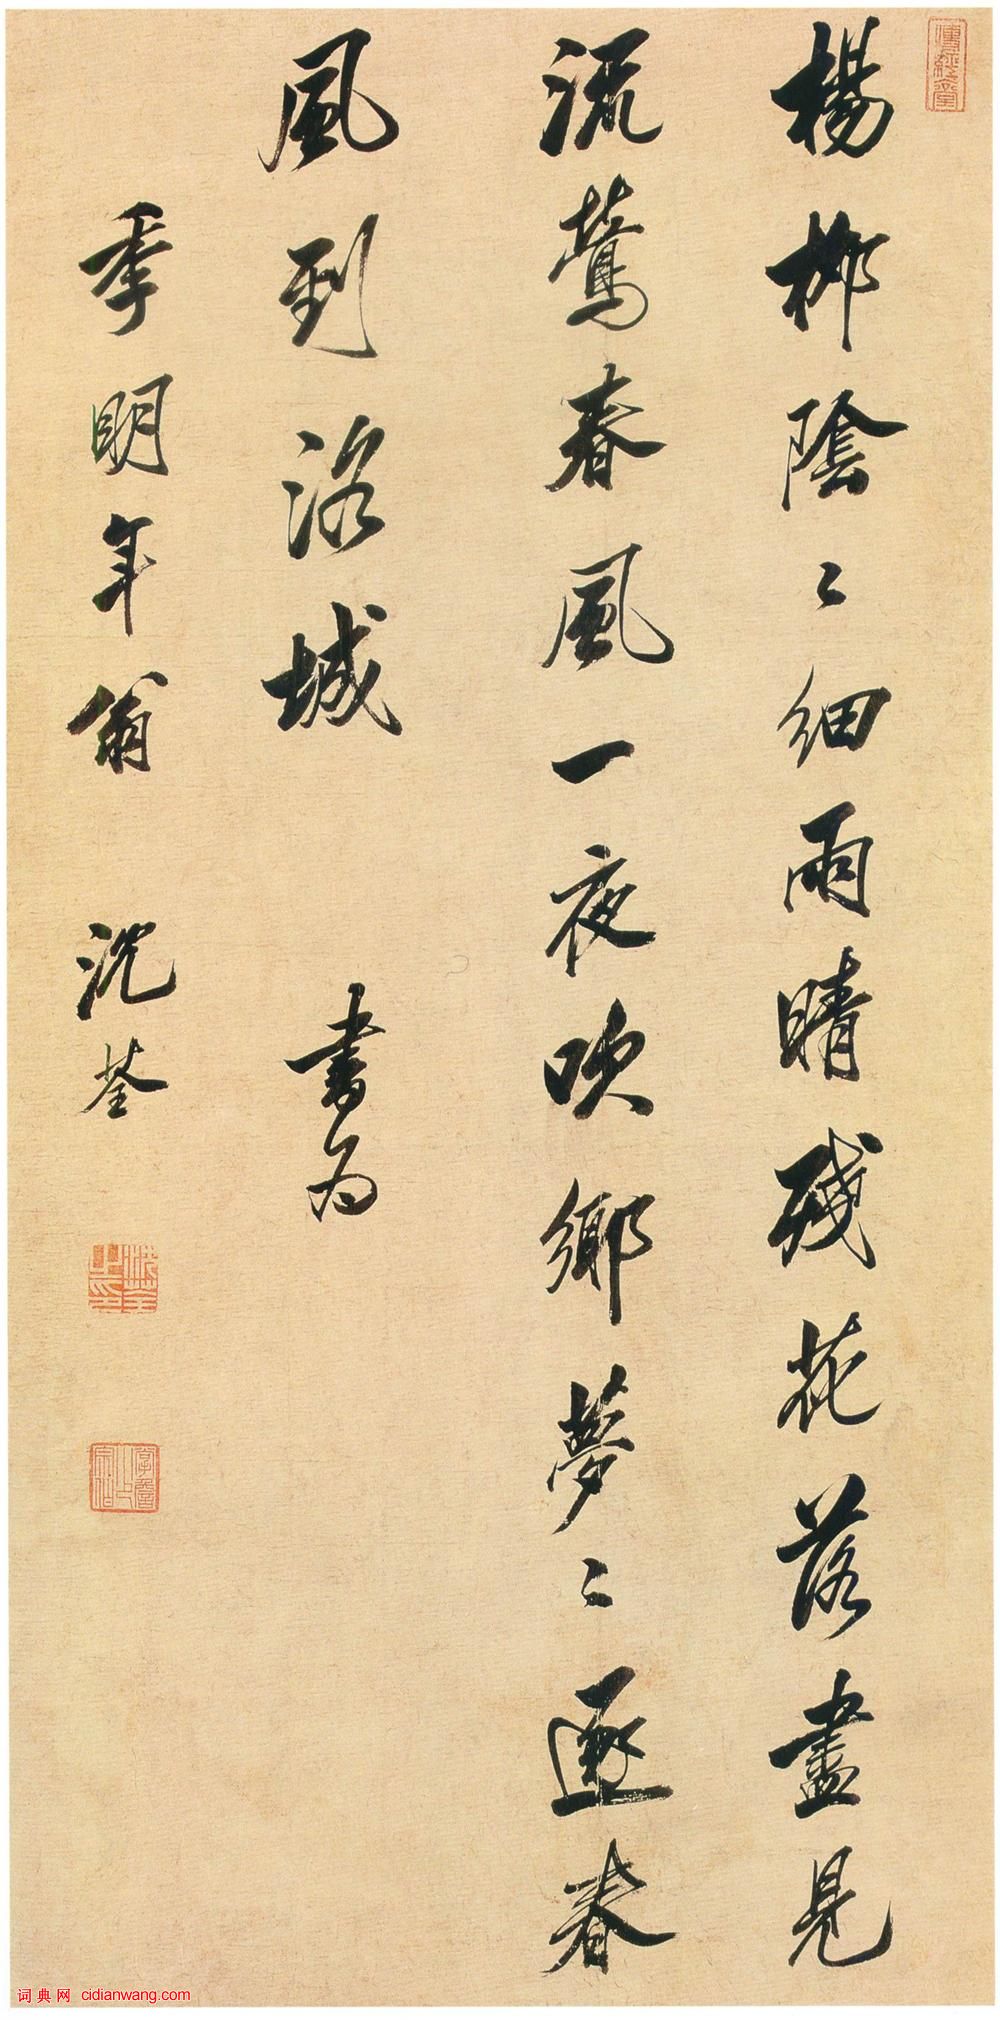 楊柳陰〻細雨晴殘花落盡見
流鶯春風一夜吹鄉夢〻逐春
風到洛城 書為
季明年翁 沈荃
傳經堂
沈荃之印
詞典网 cidianwang.com